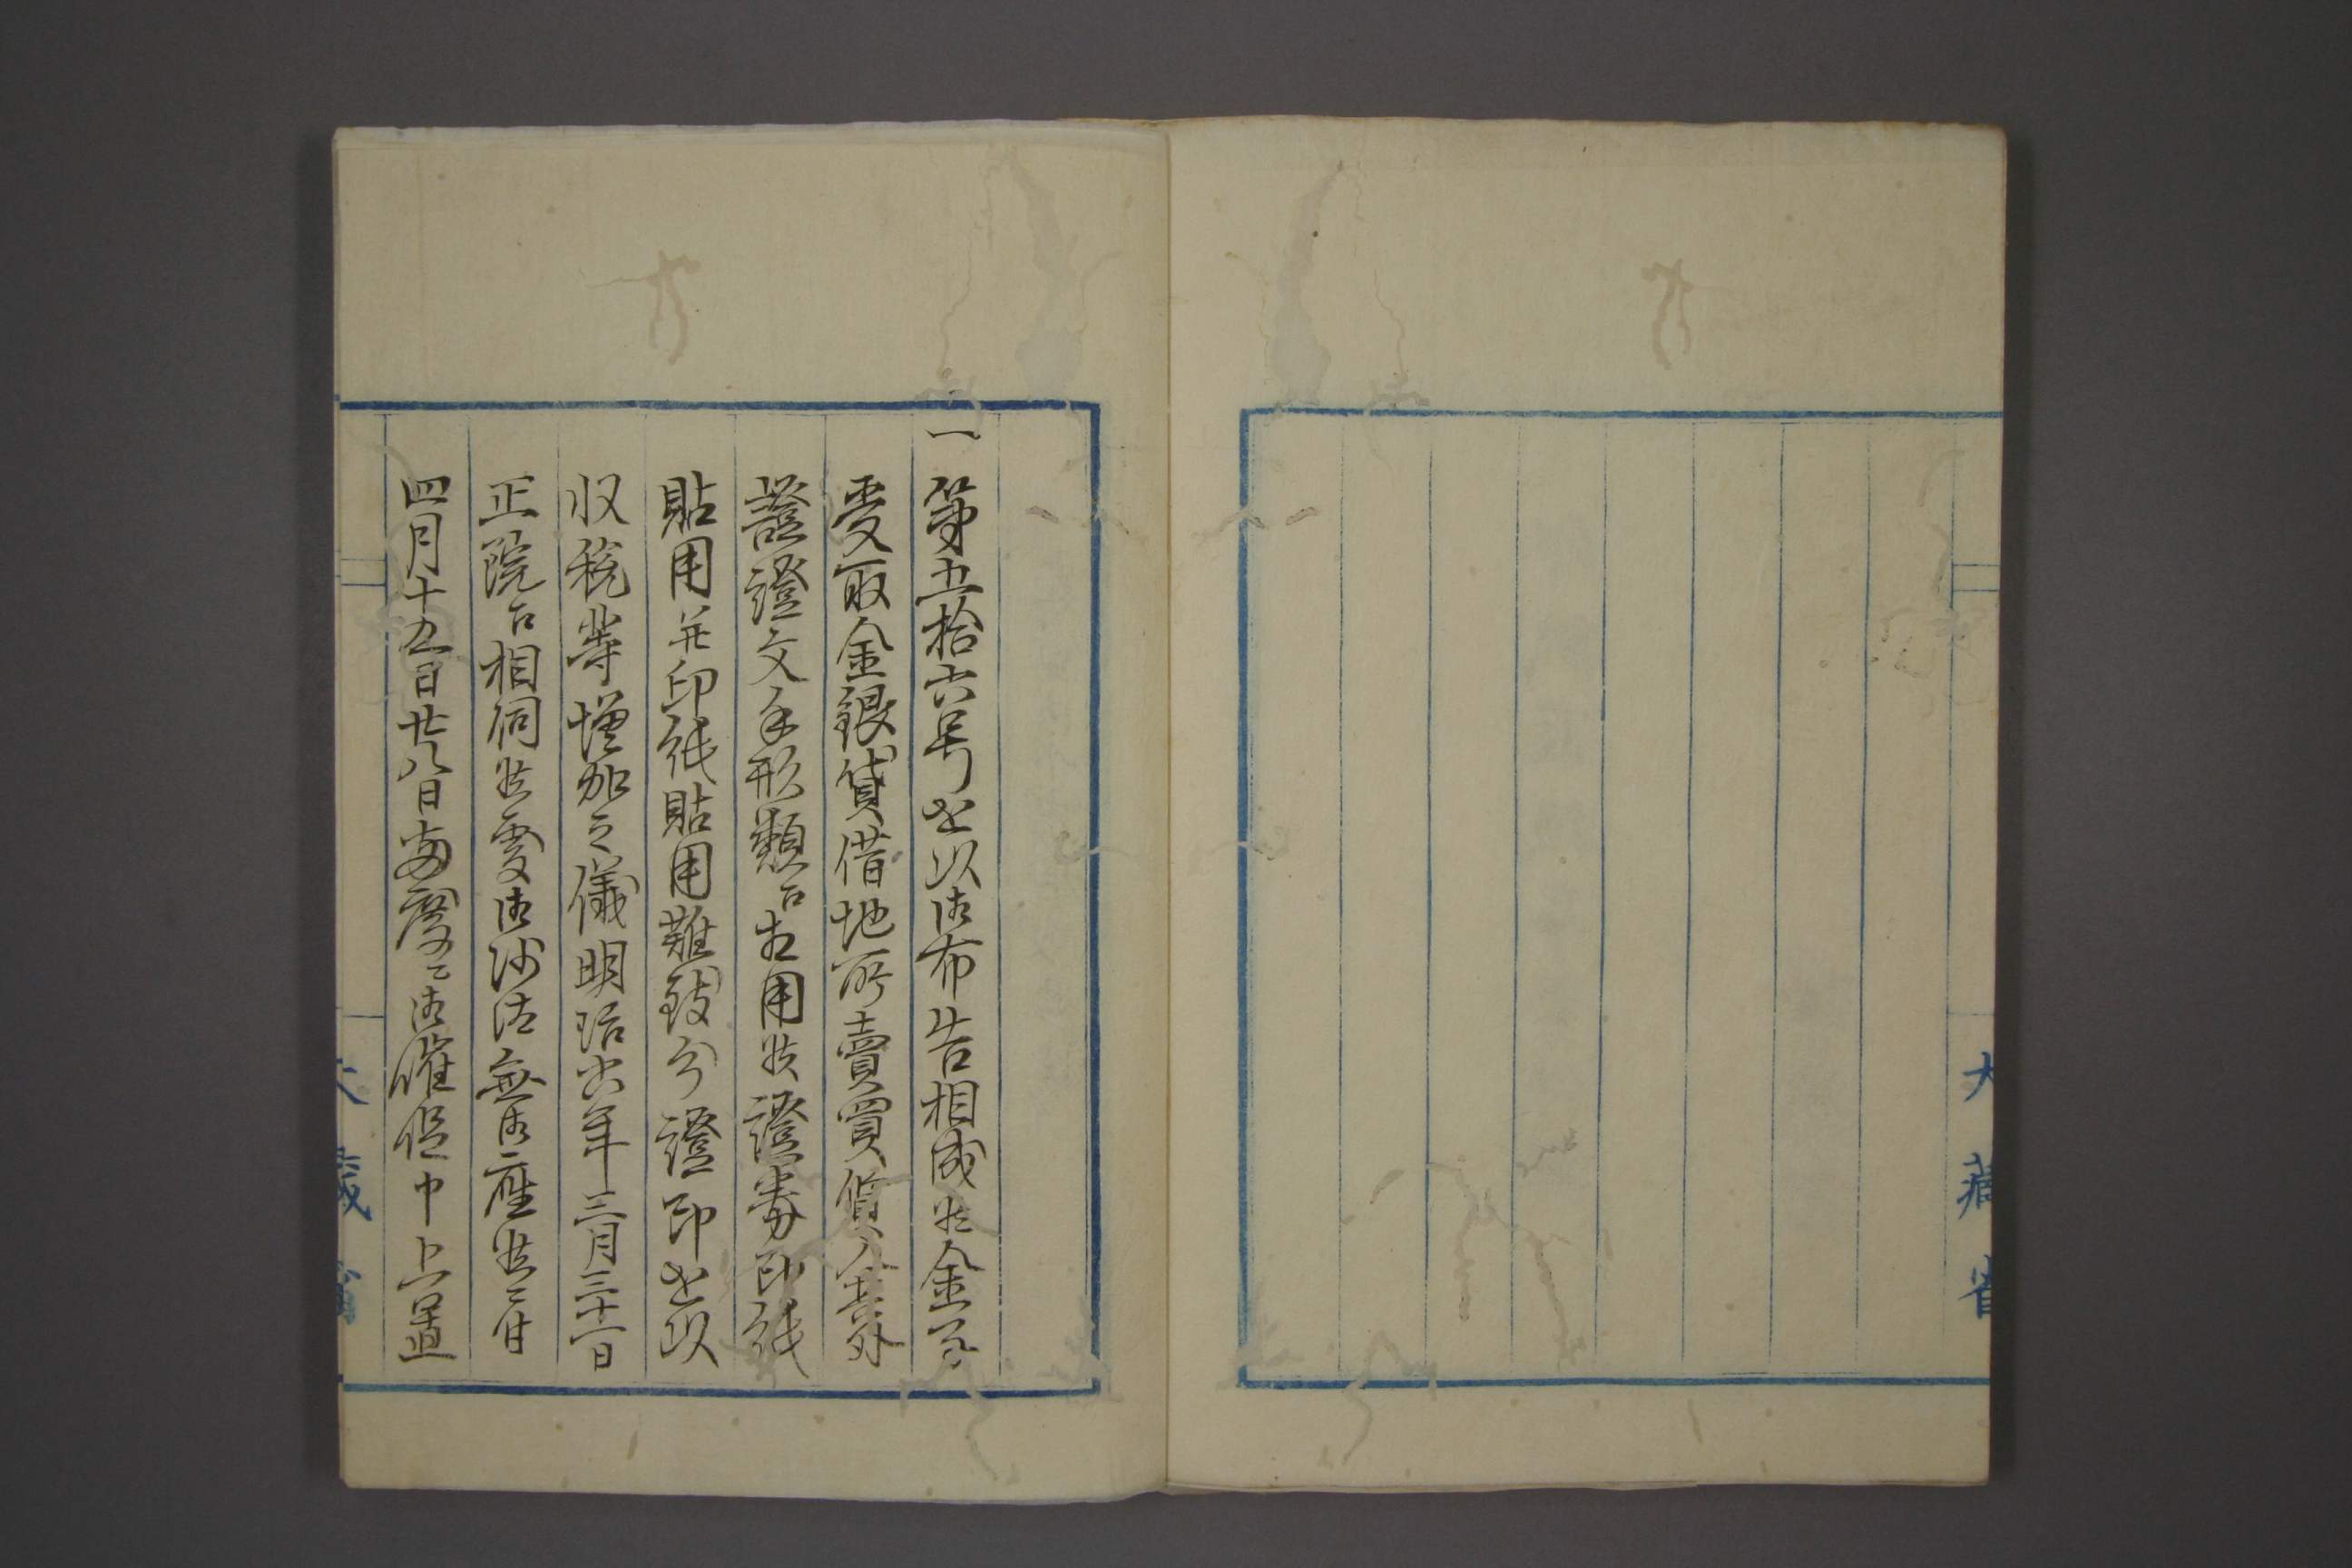 大藏省
一 第五拾六号ヲ以御布告相成候金子
受取金銀貸借地所賣買質入其外
諸證文手形類ニ相用候證券印紙
貼用并印紙貼用難致分證印ヲ以
収税等増加之儀明治六年三月三十一日
正院ニ相伺候處御沙汰無御座候ニ付
四月十五日廿八日両度ニ御催促申上置
大藏省